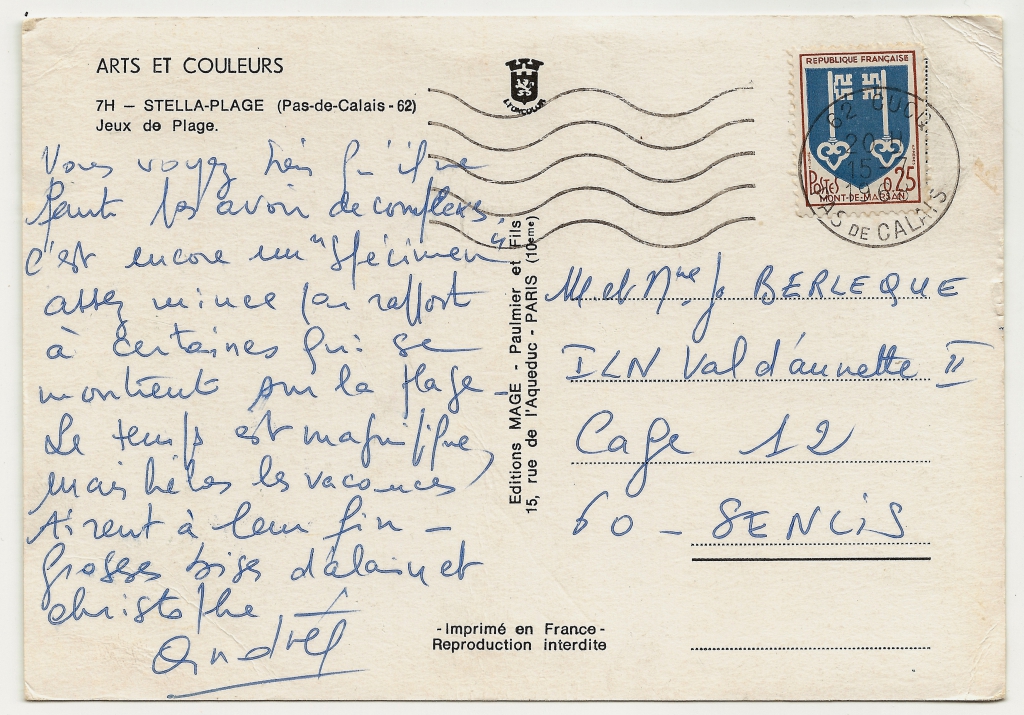 ARTS ET COULEURS
7H — STELLA-PLAGE (Pas-de-Calais - 62)
Jeux de Plage.
Vous voyez très qu'il ne
faut pas avoir de complexes,
c'est encore un "spécimen"
assez mince par rapport
à certaines qui se
montrent sur la plage -
Le temps est magnifique,
mais hélas les vacances
tirent à leur fin -
Grosses bises d'alain et
christophe
LYONCOLOR
REPUBLIQUE FRANÇAISE
POSTES 0,25
MONT-DE-MARSAN
62 CUCQ
20 H
15 7
PAS DE CALAIS
Editions MAGE - Paulmier et Fils
15, rue de l'Aqueduc - PARIS (10eme)
M. et Mme J. BERLEQUE
ILN Val d'aunette II
Cage 12
60 - SENLIS
- Imprimé en France -
Reproduction interdite